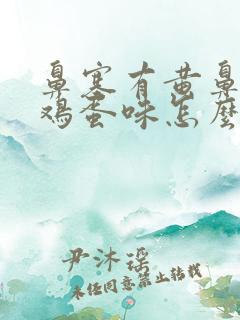 鼻塞有黄鼻
鸡蛋味怎么
尹沐瑶
未经同意禁止转载